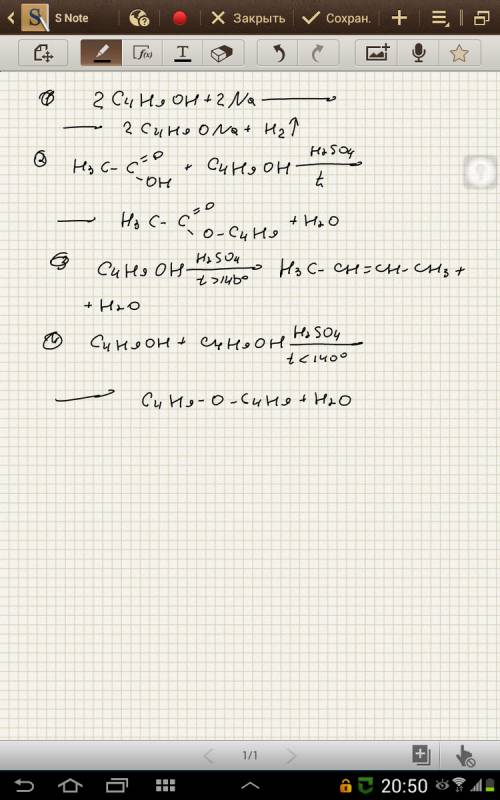 S Note
Закрыть
Сохран.
f(x)
T
1) 2 C4H9OH + 2Na ⟶
⟶ 2 C4H9ONa + H2↑
2) H3C - C =O - OH + C4H9OH H2SO4 t
⟶ H3C - C =O - O - C4H9 + H2O
3) C4H9OH H2SO4 t>140° H3C - CH = CH - CH3 +
+ H2O
4) C4H9OH + C4H9OH H2SO4 t<140°
⟶ C4H9 - O - C4H9 + H2O
1/1
20:50